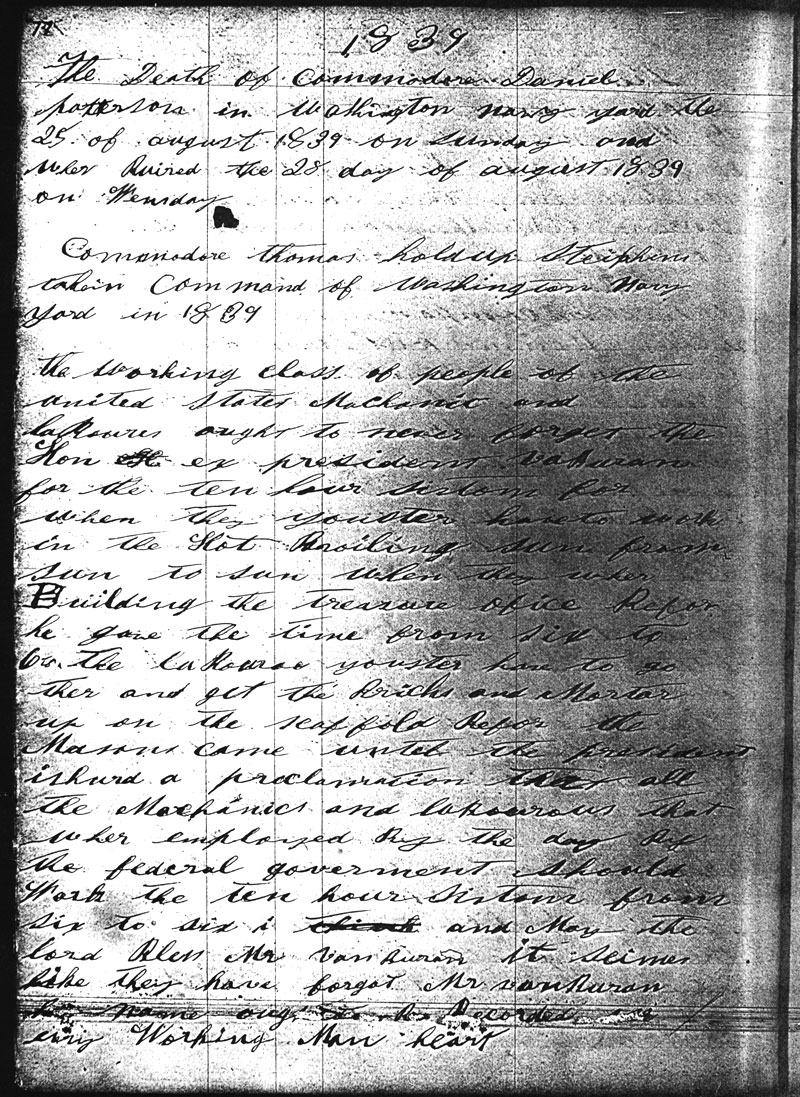 1839
The Death of Commodore Daniel
patterson in Washington navy yard the
25 of august 1839 on sunday and
wher Buired the 28 day of august 1839
on Wensday
Commodore thomas holdup Steiphins
takein Command of Washington Navy
Yard in 1839
the Working class of people of the
united States Machanic and
laboures ought to never forget the
Hon ex president vanburan
for the ten hour sistom for
when they youster have to work
in the Hot Broiling sun from
sun to sun when they wher
Building the treasure ofice Befor
he gave the time from six to
6 the labouras youster have to go
ther and get the Bricks and Mortar
up on the scaffold Befor the
Masons came untel the president
ishurd a proclamation that all
the Mechanics and labourous that
wher employed By the day By
the federal goverment should
Work the ten hour sistom from
six to six i think and May the
lord Bless Mr Vanburan it seimes
like they have forgot Mr vanburan
his name ought to be Recorded
evry Working Man heart